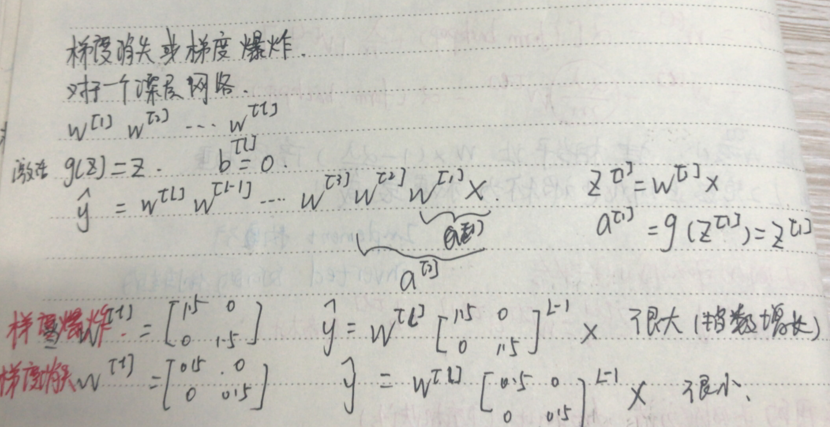 梯度消失或梯度爆炸.
对于一个深层网络.
w^[1] w^[2] ... w^[l]
激活 g(z)=z. b^[l]=0.
ŷ = w^[L] w^[L-1] ... w^[3] w^[2] w^[1] x. z^[1]=w^[1]x
a^[1] a^[1]=g(z^[1])=z^[1]
a^[2]
梯度爆炸. w^[l] = [1.5 0 0 1.5] ŷ = w^[L] [1.5 0 0 1.5]^L-1 x 很大(指数增长)
梯度消失 w^[l] = [0.5 0 0 0.5] ŷ = w^[L] [0.5 0 0 0.5]^L-1 x 很小.